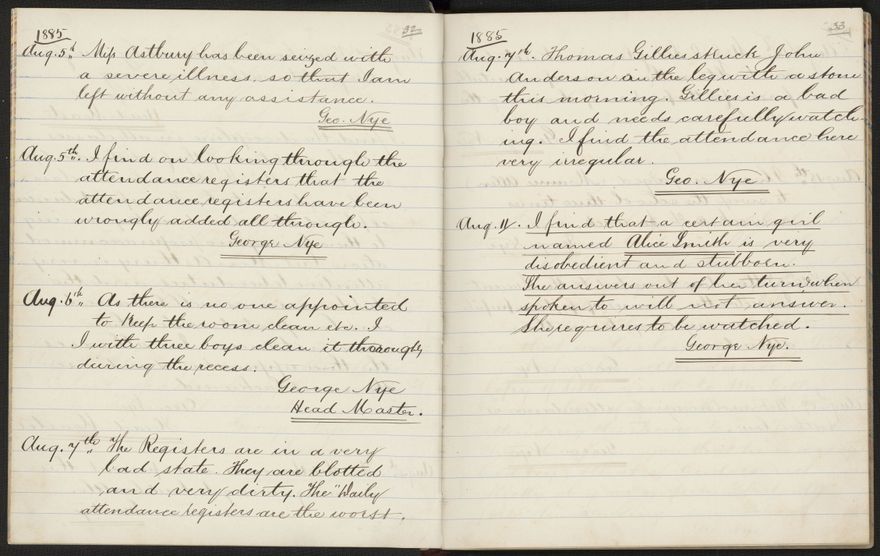 1885
32
Aug. 5th Miss Astbury has been seized with
a severe illness, so that I am
left without any assistance.
Geo. Nye
Aug. 5th. I find on looking through the
attendance registers that the
attendance registers have been
wrongly added all through.
George Nye
Aug. 6th As there is no one appointed
to keep the room clean etc. I
I with three boys clean it thoroughly
during the recess.
George Nye
Head Master.
Aug. 7th The Registers are in a very
bad state. They are blotted
and very dirty. The "Daily
attendance registers are the worst.
1885
33
Aug. 7th. Thomas Gillies struck John
Anderson on the leg with a stone
this morning. Gillies is a bad
boy and needs carefully watch-
ing. I find the attendance here
very irregular.
Geo. Nye
Aug. 11. I find that a certain girl
named Alice Smith is very
disobedient and stubborn.
She answers out of her turn & when
spoken to will not answer.
She requires to be watched.
George Nye.